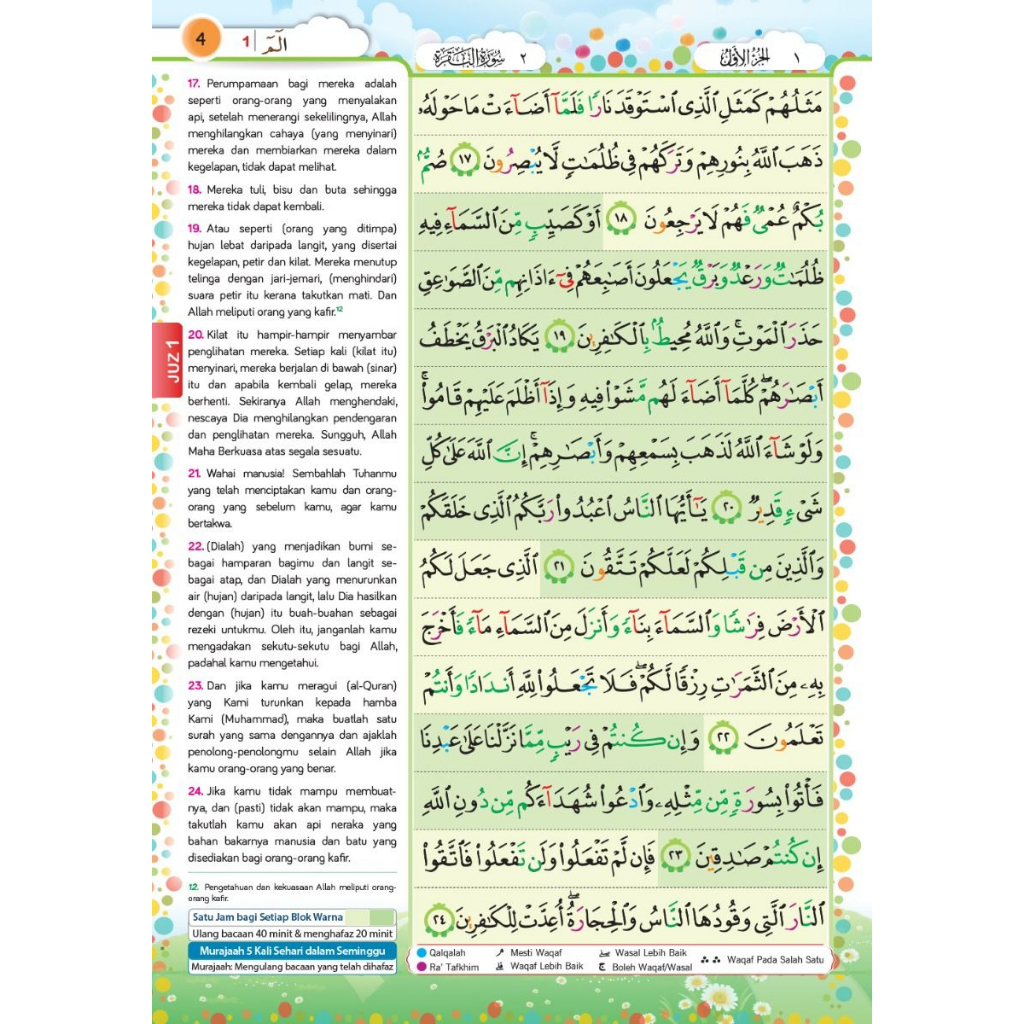 4
1 | الٓمٓ
سُورَةُ الْبَقَرَةِ ٢
الْجُزْءُ الْأَوَّلُ ١
17. Perumpamaan bagi mereka adalah
seperti orang-orang yang menyalakan
api, setelah menerangi sekelilingnya, Allah
menghilangkan cahaya (yang menyinari)
mereka dan membiarkan mereka dalam
kegelapan, tidak dapat melihat.
18. Mereka tuli, bisu dan buta sehingga
mereka tidak dapat kembali.
19. Atau seperti (orang yang ditimpa)
hujan lebat daripada langit, yang disertai
kegelapan, petir dan kilat. Mereka menutup
telinga dengan jari-jemari, (menghindari)
suara petir itu kerana takutkan mati. Dan
Allah meliputi orang yang kafir.12
20. Kilat itu hampir-hampir menyambar
penglihatan mereka. Setiap kali (kilat itu)
menyinari, mereka berjalan di bawah (sinar)
itu dan apabila kembali gelap, mereka
berhenti. Sekiranya Allah menghendaki,
nescaya Dia menghilangkan pendengaran
dan penglihatan mereka. Sungguh, Allah
Maha Berkuasa atas segala sesuatu.
21. Wahai manusia! Sembahlah Tuhanmu
yang telah menciptakan kamu dan orang-
orang yang sebelum kamu, agar kamu
bertakwa.
22. (Dialah) yang menjadikan bumi se-
bagai hamparan bagimu dan langit se-
bagai atap, dan Dialah yang menurunkan
air (hujan) daripada langit, lalu Dia hasilkan
dengan (hujan) itu buah-buahan sebagai
rezeki untukmu. Oleh itu, janganlah kamu
mengadakan sekutu-sekutu bagi Allah,
padahal kamu mengetahui.
23. Dan jika kamu meragui (al-Quran)
yang Kami turunkan kepada hamba
Kami (Muhammad), maka buatlah satu
surah yang sama dengannya dan ajaklah
penolong-penolongmu selain Allah jika
kamu orang-orang yang benar.
24. Jika kamu tidak mampu membuat-
nya, dan (pasti) tidak akan mampu, maka
takutlah kamu akan api neraka yang
bahan bakarnya manusia dan batu yang
disediakan bagi orang-orang kafir.
12. Pengetahuan dan kekuasaan Allah meliputi orang-
orang kafir.
Satu Jam bagi Setiap Blok Warna
Ulang bacaan 40 minit & menghafaz 20 minit
Murajaah 5 Kali Sehari dalam Seminggu
Murajaah: Mengulang bacaan yang telah dihafaz
JUZ 1
مَثَلُهُمْ كَمَثَلِ الَّذِى اسْتَوْقَدَ نَارًا فَلَمَّآ أَضَآءَتْ مَا حَوْلَهُۥ
ذَهَبَ اللَّهُ بِنُورِهِمْ وَتَرَكَهُمْ فِى ظُلُمَٰتٍ لَّا يُبْصِرُونَ ١٧ صُمٌّۢ
بُكْمٌ عُمْىٌ فَهُمْ لَا يَرْجِعُونَ ١٨ أَوْ كَصَيِّبٍ مِّنَ السَّمَآءِ فِيهِ
ظُلُمَٰتٌ وَرَعْدٌ وَبَرْقٌ يَجْعَلُونَ أَصَٰبِعَهُمْ فِىٓ ءَاذَانِهِم مِّنَ الصَّوَٰعِقِ
حَذَرَ الْمَوْتِ ۚ وَاللَّهُ مُحِيطٌۢ بِالْكَٰفِرِينَ ١٩ يَكَادُ الْبَرْقُ يَخْطَفُ
أَبْصَٰرَهُمْ ۖ كُلَّمَآ أَضَآءَ لَهُم مَّشَوْا۟ فِيهِ وَإِذَآ أَظْلَمَ عَلَيْهِمْ قَامُوا۟ ۚ
وَلَوْ شَآءَ اللَّهُ لَذَهَبَ بِسَمْعِهِمْ وَأَبْصَٰرِهِمْ ۚ إِنَّ اللَّهَ عَلَىٰ كُلِّ
شَىْءٍ قَدِيرٌ ٢٠ يَٰٓأَيُّهَا النَّاسُ اعْبُدُوا۟ رَبَّكُمُ الَّذِى خَلَقَكُمْ
وَالَّذِينَ مِن قَبْلِكُمْ لَعَلَّكُمْ تَتَّقُونَ ٢١ الَّذِى جَعَلَ لَكُمُ
الْأَرْضَ فِرَٰشًا وَالسَّمَآءَ بِنَآءً وَأَنزَلَ مِنَ السَّمَآءِ مَآءً فَأَخْرَجَ
بِهِۦ مِنَ الثَّمَرَٰتِ رِزْقًا لَّكُمْ ۖ فَلَا تَجْعَلُوا۟ لِلَّهِ أَندَادًا وَأَنتُمْ
تَعْلَمُونَ ٢٢ وَإِن كُنتُمْ فِى رَيْبٍ مِّمَّا نَزَّلْنَا عَلَىٰ عَبْدِنَا
فَأْتُوا۟ بِسُورَةٍ مِّن مِّثْلِهِۦ وَادْعُوا۟ شُهَدَآءَكُم مِّن دُونِ اللَّهِ
إِن كُنتُمْ صَٰدِقِينَ ٢٣ فَإِن لَّمْ تَفْعَلُوا۟ وَلَن تَفْعَلُوا۟ فَاتَّقُوا۟
النَّارَ الَّتِى وَقُودُهَا النَّاسُ وَالْحِجَارَةُ ۖ أُعِدَّتْ لِلْكَٰفِرِينَ ٢٤
Qalqalah
Mesti Waqaf
Wasal Lebih Baik
Waqaf Pada Salah Satu
Ra' Tafkhim
Waqaf Lebih Baik
Boleh Waqaf/Wasal